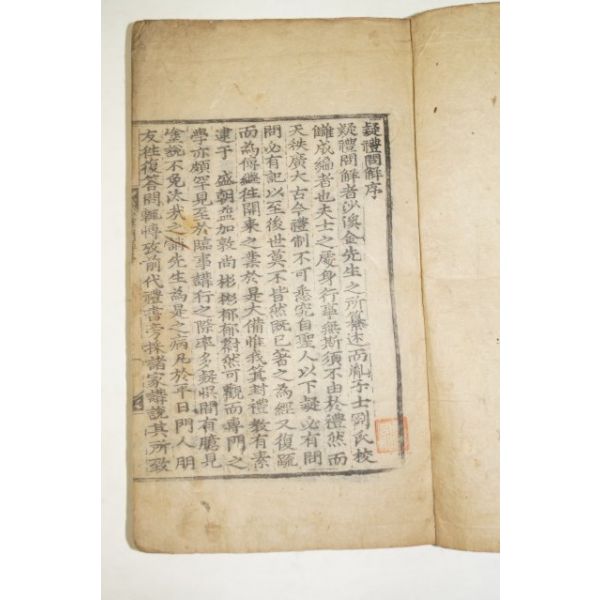 疑禮問解序
疑禮問解者沙溪金先生之所纂述而胤子士剛氏校
讎成編者也夫士之處身行事無斯須不由於禮然而
天秩廣大古今禮制不可悉究自聖人以下疑必有問
問必有記以至後世莫不皆然既已著之為經又復疏
而為傳繼往開來之業於是大備惟我箕封禮教有素
逮于 盛朝益加敦尚彬彬郁郁對然可觀而專門之
學亦頗罕見至於臨事講行之際率多疑悞間有臆見
塗說不免汰我之誚先生為是之病凡於平日門人朋
友往復答問輒博攷前代禮書考採諸家講說其所致